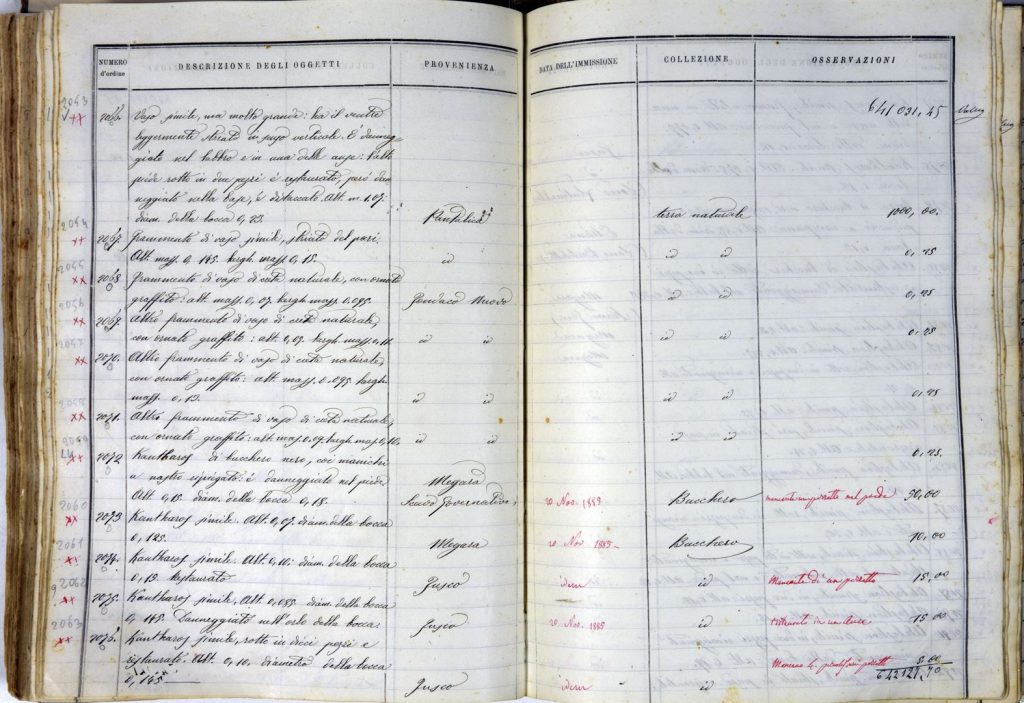 NUMERO d'ordine DESCRIZIONE DEGLI OGGETTI PROVENIENZA DATA DELL'IMMISSIONE COLLEZIONE OSSERVAZIONI
2043
641031,45
2066. Vaso simile, ma molto grande: ha il ventre
leggermente striato in senso verticale. È danneg-
giato nel labbro e in una delle anse: l'alto
piede rotto in due pezzi è restaurato, però dan-
neggiato nella base, è distaccato. Alt. m. 1,07.
diam. della bocca 0,23. Pantalica terra naturale 1000,00.
2054
2067. Frammento di vaso simile, striato del pari.
Alt. mass. 0,145. largh. mass. 0,15. id id id 0,25
2055
2068 Frammento di vaso di creta naturale, con ornato
graffito: alt. mass. 0,07. largh. mass. 0,095. Fondaco Nuovo id id 0,25
2056
2069. Altro frammento di vaso di creta naturale,
con ornato graffito: alt. 0,09. largh. mass. 0,11. id id id id 0,25
2057
2070. Altro frammento di vaso di creta naturale,
con ornato graffito: alt. mass. 0,095. largh.
mass. 0,13. id id id id 0,25
2058
2071. Altro frammento di vaso di creta naturale,
con ornato graffito: alt. mass. 0,09. largh. mass. 0,10. id id id id 0,25.
2059
2072 Kantharos di bucchero nero, coi manichi
a nastro ripiegato: è danneggiato nel piede Megara
Alt. 0,15. diam. della bocca 0,18. Scavo Governativo. 20 Nov. 1889 Bucchero nel piede 30,00
2060
2073 Kantharos simile. Alt. 0,07. diam. della bocca
0,125. Megara 20 Nov 1885 Bucchero 10,00
2061
2074. Kantharos simile. Alt. 0,10. diam. della bocca
0,13. Restaurato Fusco idem id Mancante di un pezzetto 15,00
2062
2075. Kantharos simile. Alt. 0,085. diam. della bocca
0,145. Danneggiato nell'orlo della bocca. Fusco 20 Nov. 1885 id 15,00
2063
2076. Kantharos simile, rotto in dieci pezzi e
restaurato. Alt. 0,10. diametro della bocca 5,00
0,145 Fusco idem id 642127,70